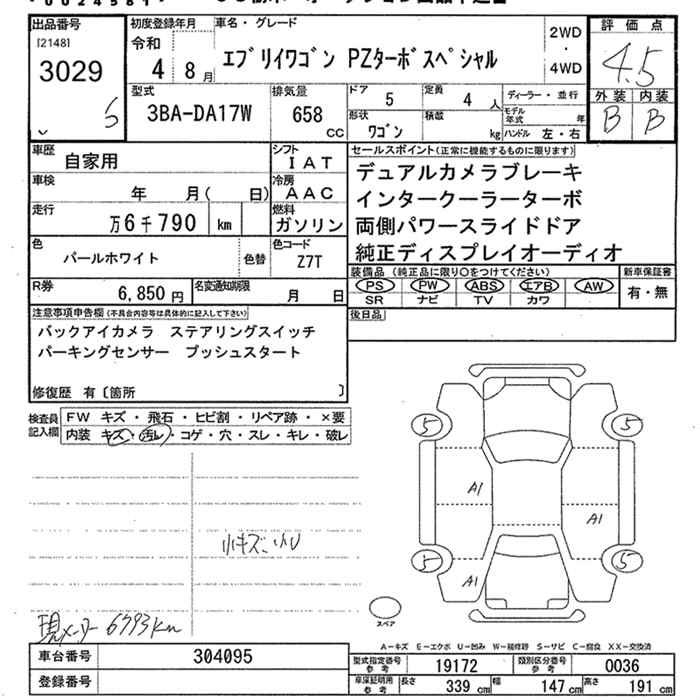 出品番号
[2148]
3029
初度登録年月
令和
4 8月
車名・グレード
エブリイワゴン PZターボスペシャル
2WD
・
4WD
評価点
4.5
外装 内装
B B
型式
3BA-DA17W
排気量
658
CC
ドア
5
定員
4 人
形状
ワゴン
積載
kg
ディーラー・並行
モデル年式 年
ハンドル 左・右
車歴
自家用
シフト
IAT
車検
年 月( 日)
冷房
AAC
走行
万6千790 km
燃料
ガソリン
色
パールホワイト
色替
色コード
Z7T
R券
6,850円
名変通知期限
月 日
セールスポイント(正常に機能するものに限ります)
デュアルカメラブレーキ
インタークーラーターボ
両側パワースライドドア
純正ディスプレイオーディオ
装備品(純正品に限り○をつけてください)
PS PW ABS エアB AW
SR ナビ TV カワ
新車保証書
有・無
後日品
注意事項申告欄(不具合内容等は具体的に記入して下さい)
バックアイカメラ ステアリングスイッチ
パーキングセンサー プッシュスタート
修復歴 有〔箇所 〕
検査員記入欄
FW キズ・飛石・ヒビ割・リペア跡・×要
内装 キズ・汚レ・コゲ・穴・スレ・キレ・破レ
5 5
A1
A1
5 5
A1
小キズ、小U
現メーター 6793km
スペア
A−キズ E−エクボ U−凹み W−補修跡 S−サビ C−腐食 XX−交換済
車台番号 304095
登録番号
型式指定番号参考 19172
類別区分番号参考 0036
車庫証明用参考 長さ 339cm 幅 147cm 高さ 191cm